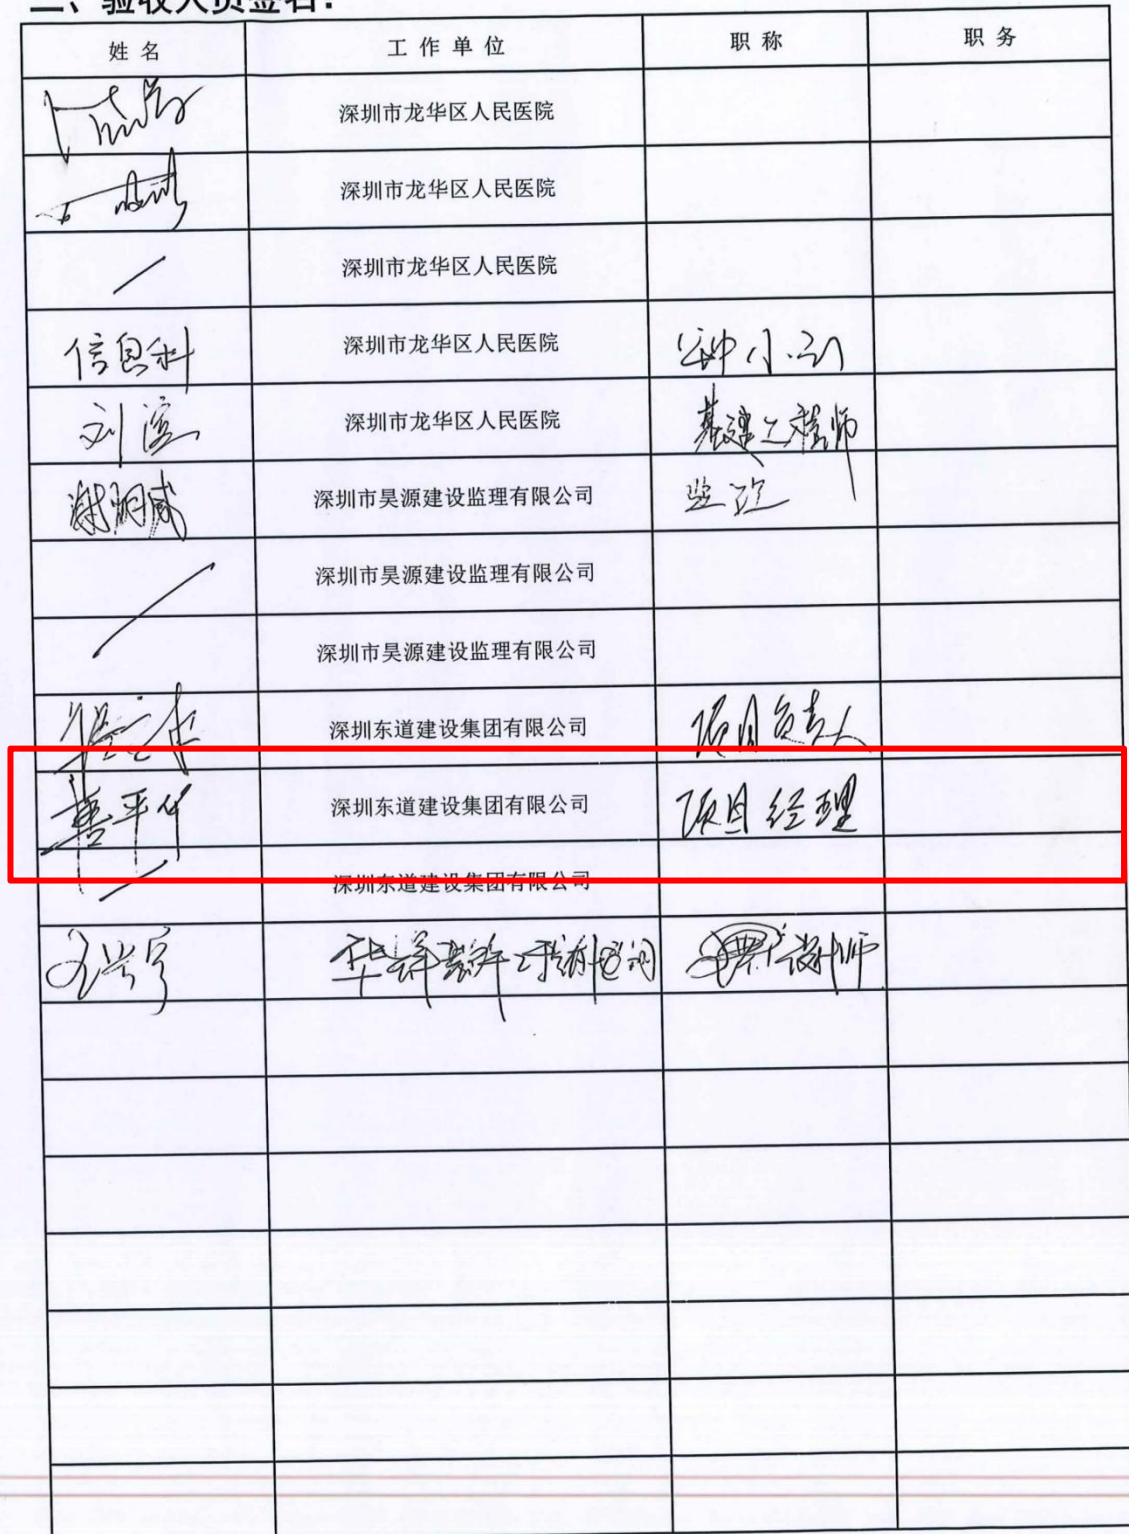 二、验收人员签名：
姓名 工作单位 职称 职务
深圳市龙华区人民医院
深圳市龙华区人民医院
深圳市龙华区人民医院
信息科 深圳市龙华区人民医院
刘 深圳市龙华区人民医院 基建工程师
谢明威 深圳市昊源建设监理有限公司 监理
深圳市昊源建设监理有限公司
深圳市昊源建设监理有限公司
深圳东道建设集团有限公司 项目负责人
平华 深圳东道建设集团有限公司 项目经理
深圳东道建设集团有限公司
设计师